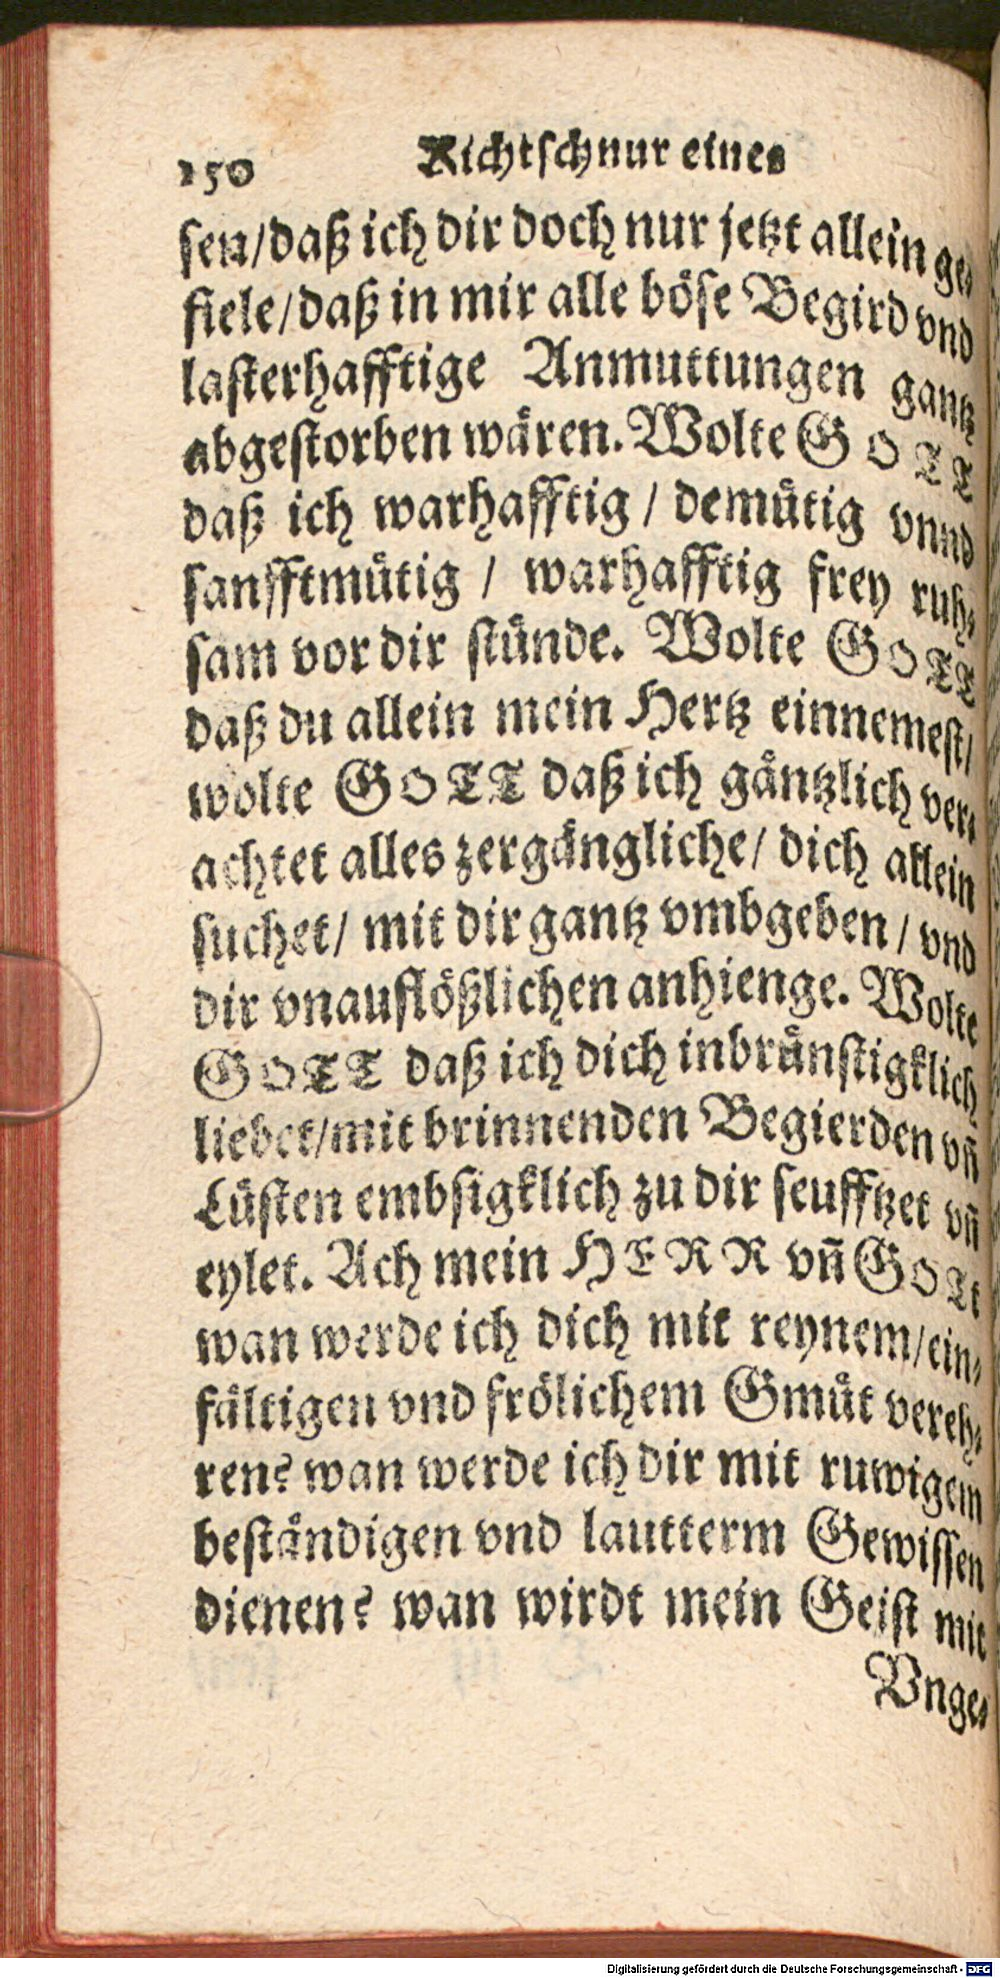 150 Richtschnur eines
sen/daß ich dir doch nur jetzt allein ge-
fiele/daß in mir alle böse Begird vnd
lasterhafftige Anmuttungen gantz
abgestorben wären. Wolte GOTT
daß ich warhafftig / demütig vnnd
sanfftmütig / warhafftig frey ruh-
sam vor dir stünde. Wolte GOTT
daß du allein mein Hertz einnemest/
wolte GOTT daß ich gäntzlich ver-
achtet alles zergängliche/ dich allein
suchet/ mit dir gantz vmbgeben / vnd
dir vnauflößlichen anhienge. Wolte
GOTT daß ich dich inbrünstigklich
liebet/mit brinnenden Begierden vñ
Lüsten embsigklich zu dir seufftzet vñ
eylet. Ach mein HERR vñ GOTt
wan werde ich dich mit reynem/ein-
fältigen vnd frölichem Gmüt vereh-
ren? wan werde ich dir mit ruwigem
beständigen vnd lautterm Gewissen
dienen? wan wirdt mein Geist mit
Vnge-
Digitalisierung gefördert durch die Deutsche Forschungsgemeinschaft - DFG